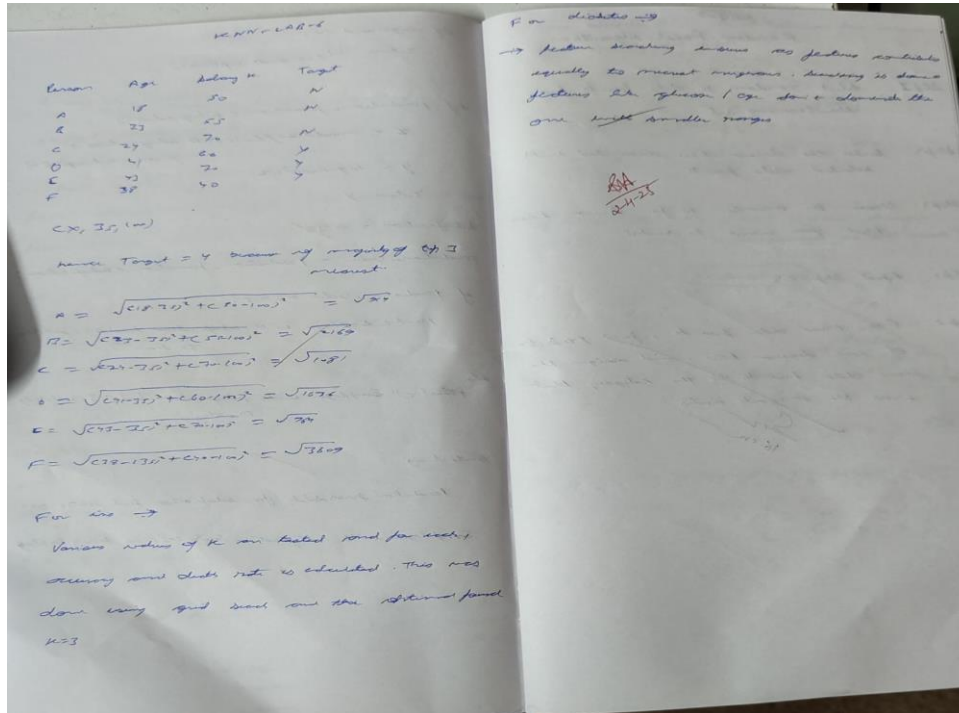 KNN - LAB-6
Person Age Salary K Target
A 18 50 N
B 23 55 N
C 24 70 N
D 41 60 Y
E 43 70 Y
F 38 40 Y
(X, 35, 100)
hence Target = Y because of majority of top 3
nearest.
A = √(18-35)² + (50-100)² = √
B = √(23-35)² + (55-100)² = √2169
C = √(24-35)² + (70-100)² = √1021
D = √(41-35)² + (60-100)² = √1636
E = √(43-35)² + (70-100)² = √964
F = √(38-35)² + (40-100)² = √3609
For iris →
Various values of K are tested and for each,
accuracy and error rate is calculated. This was
done using grid search and the optimal found
K=3
For diabetes →
→ feature scaling ensures as features contribute
equally to nearest neighbours. Scaling is done
features like glucose / age don't dominate the
one with smaller ranges
2-4-25